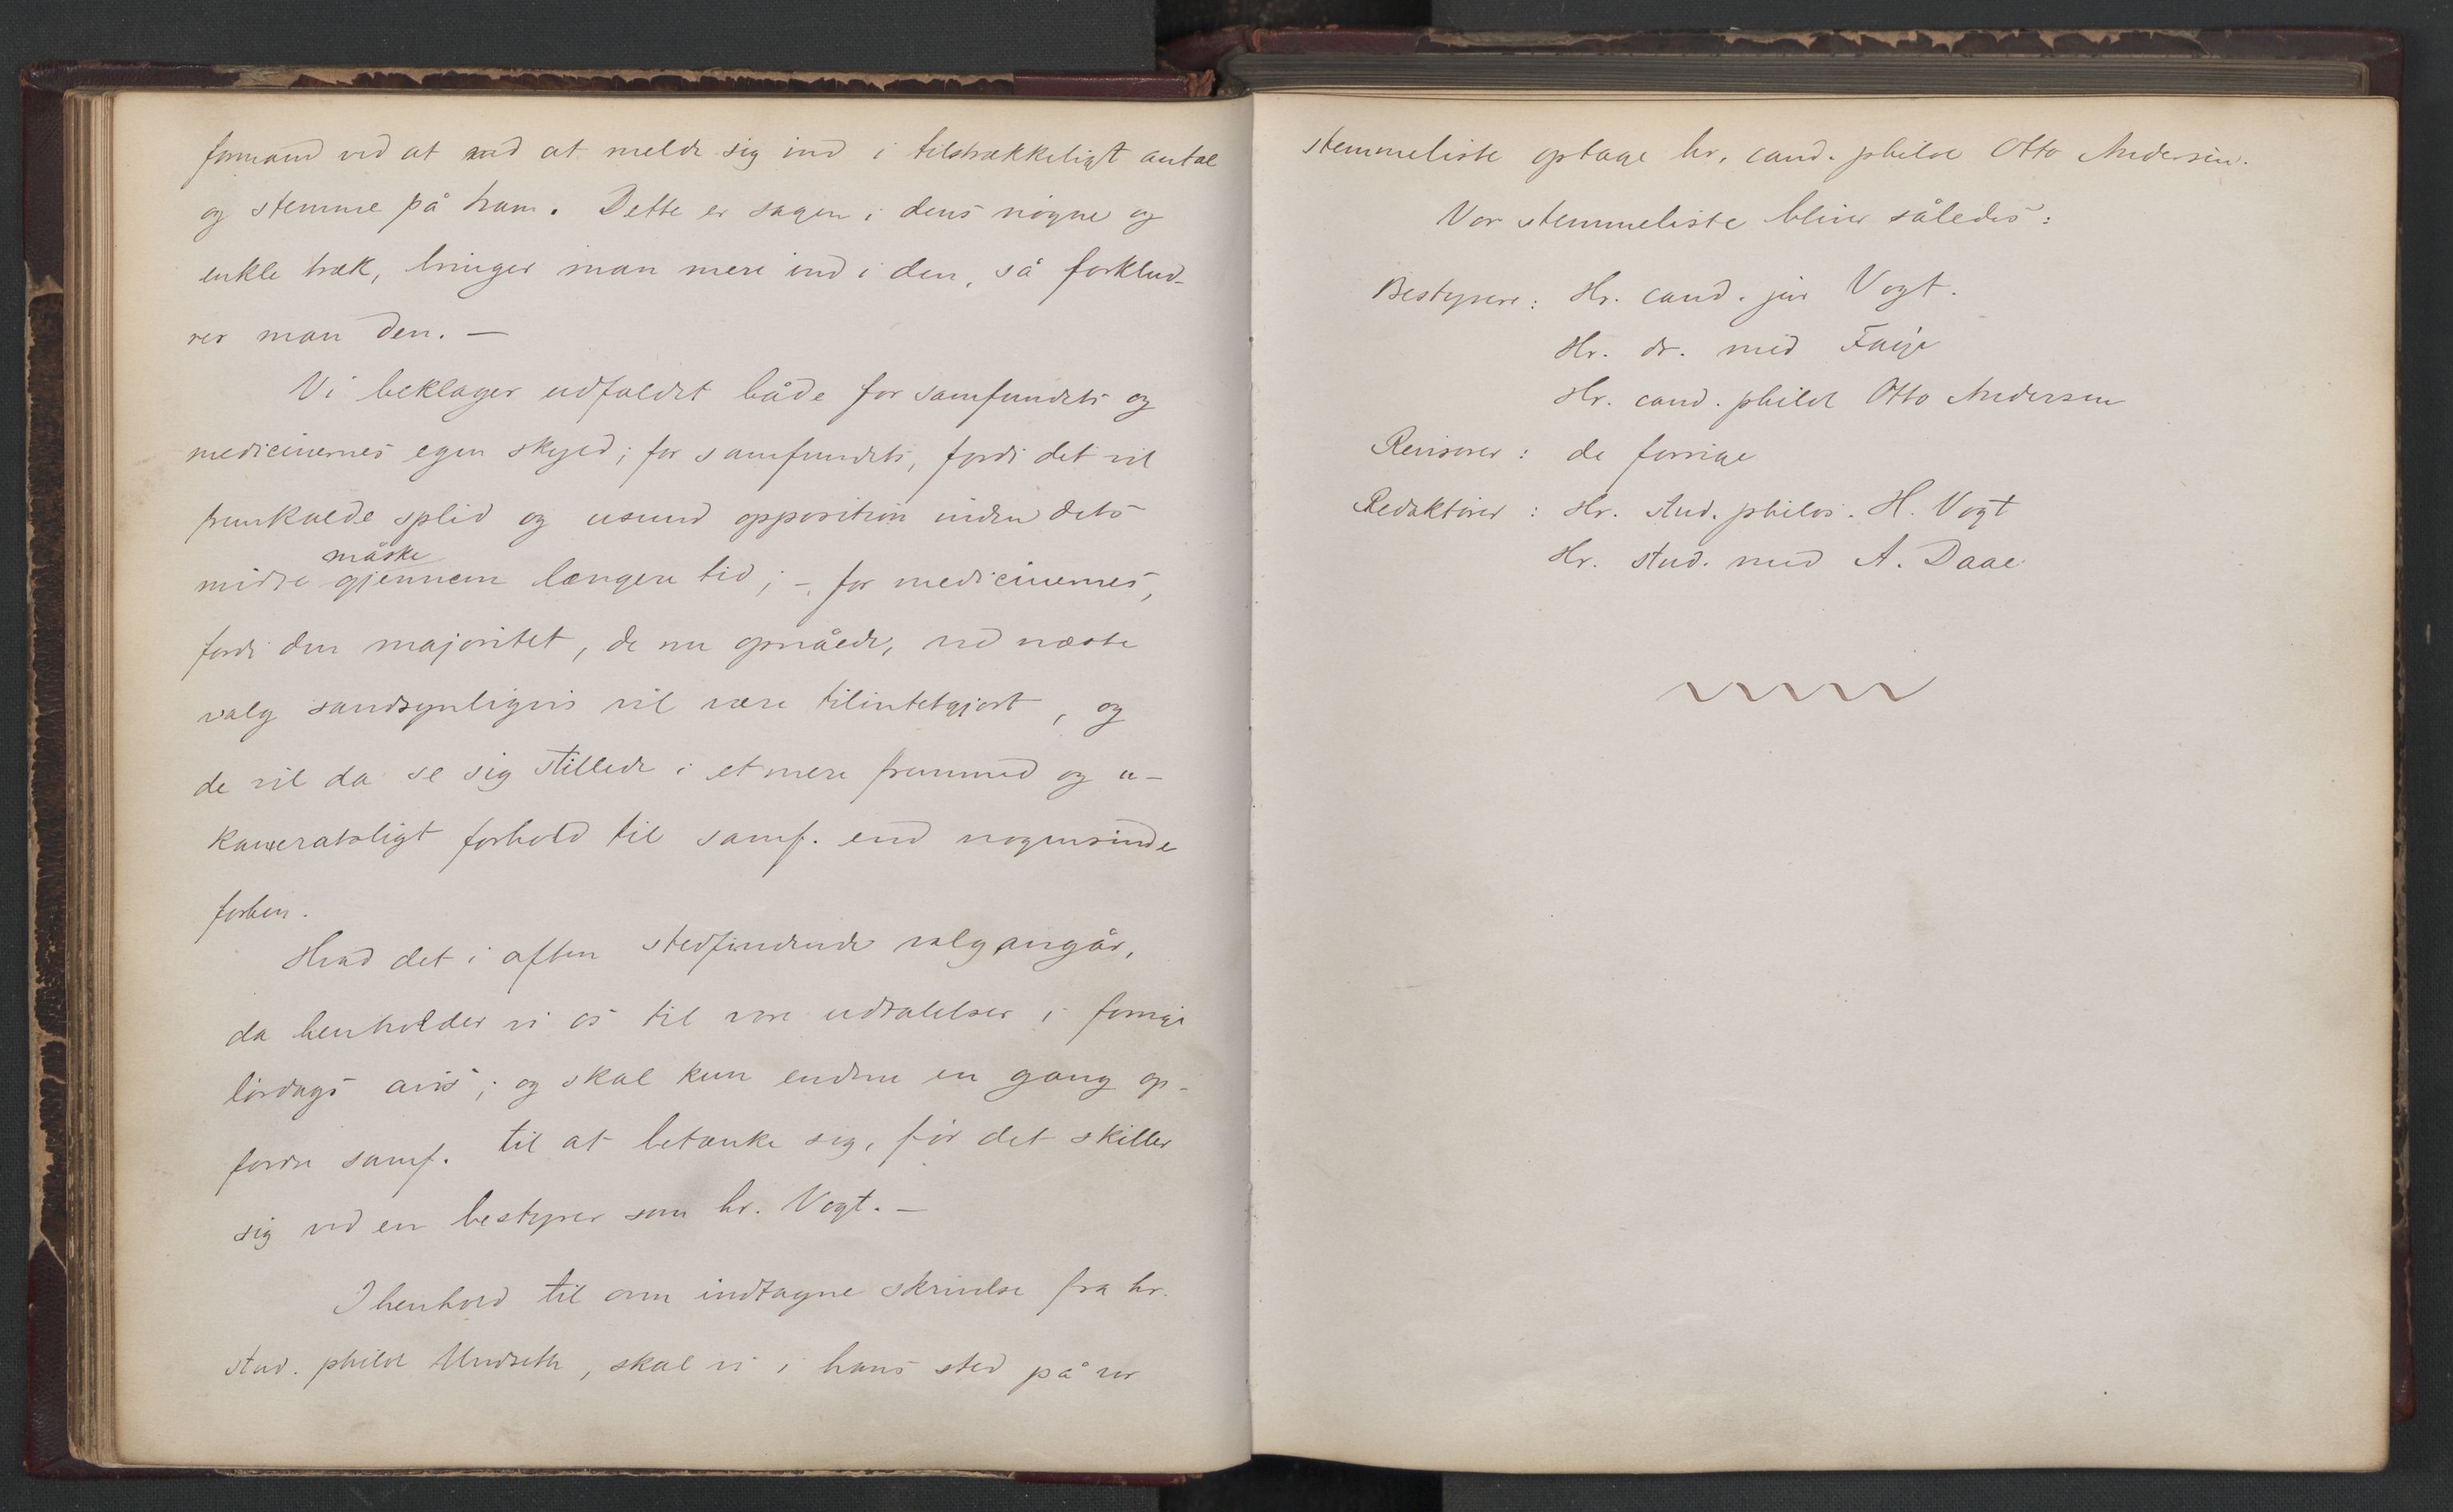 formand ved at ved at melde sig ind i tilstrækkeligt antal
og stemme på ham. Dette er sagen i dens nögne og
enkle træk, bringer man mere ind i den, så forklud-
rer man den. —
Vi beklager udfaldet både for samfundets og
medicinernes egen skyld; for samfundets, fordi det vil
fremkalde splid og usund opposition inden dets
måske
midte gjennem længere tid; – for medicinernes,
fordi den majoritet, de nu opnåede, ved næste
valg sandsynligvis vil være tilintetgjort, og
de vil da se sig stillede i et mere fremmed og u-
kameratsligt forhold til samf. end nogensinde
forhen.
Hvad det i aften stedfindende valg angår,
da henholder vi os til vore udtalelser i forrige
lördags avis; og skal kun endnu en gang op-
fordre samf. til at betænke sig, för det skiller
sig ved en bestyrer som hr. Vogt. —
I henhold til oven indtagne skrivelse fra hr.
stud. philol Undseth, skal vi i hans sted på vor
stemmeliste optage hr. cand. philol Otto Andersen.
Vor stemmeliste bliver således:
Bestyrere: Hr. cand. jur Vogt.
Hr. dr. med Faye
Hr. cand. philol Otto Andersen
Revisorer: de forrige
Redaktörer: Hr. stud. philos. H. Vogt
Hr. stud. med A. Daae